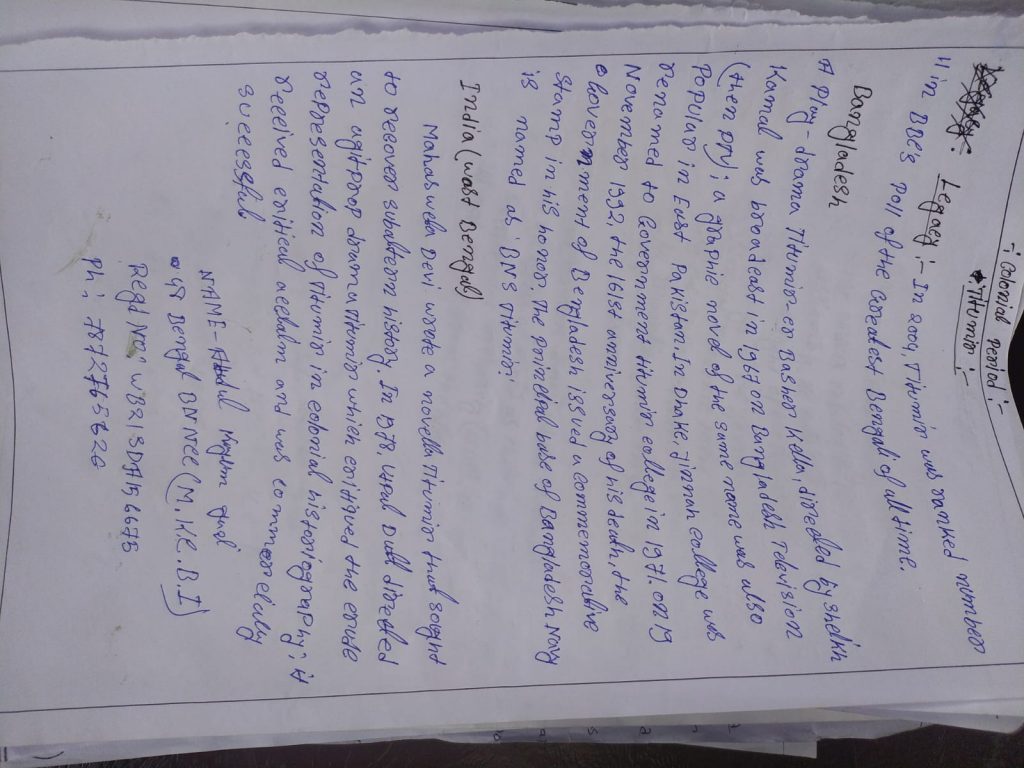 :; Colonial period :-
* Titumir :-
Legacy :- In 2004, Titumir was ranked number
11 in BBC's Poll of the Greatest Bengali of all time.
Bangladesh
A play-drama Titumir-er Basher Kella, directed by sheikh
Kamal was broadcast in 1967 on Bangladesh Television
(then PTV); a graphic novel of the same name was also
Popular in East Pakistan. In Dhake, Jinnah College was
renamed to Government Titumir college in 1971. on 19
November 1992, the 161st anniversary of his death, the
Government of Bangladesh issued a commemorative
Stamp in his honor. The principal base of Bangladesh Navy
is named as 'BNS Titumir!
India (West Bengal)
Mahasweta Devi wrote a novella Titumir that sought
to recover subaltern history. In 1978, Utpal Dutt directed
an agitprop drama Titumir which critiqued the crude
representation of Titumir in colonial historiography; it
received critical acclaim and was commercially
successful
NAME - Abdul
48 Bengal BN NCC (M.K.B.I)
Regd No :
Ph : 7872765626